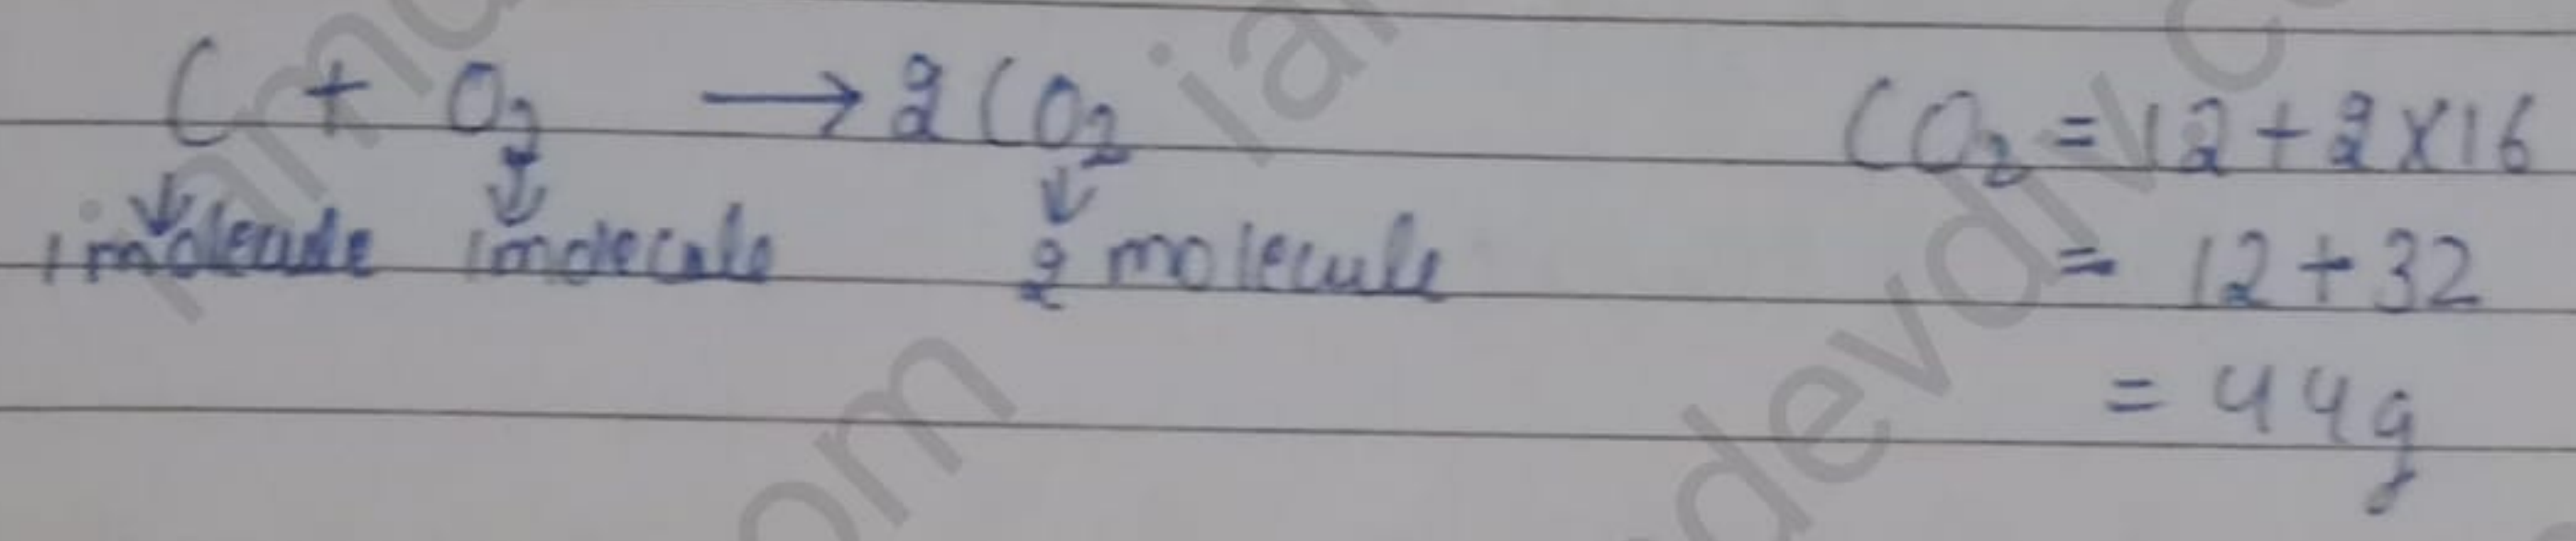 C + O₂ → 2CO₂
↓ ↓ ↓
1 molecule 1 molecule 2 molecule
CO₂ = 12 + 2×16
= 12 + 32
= 44g